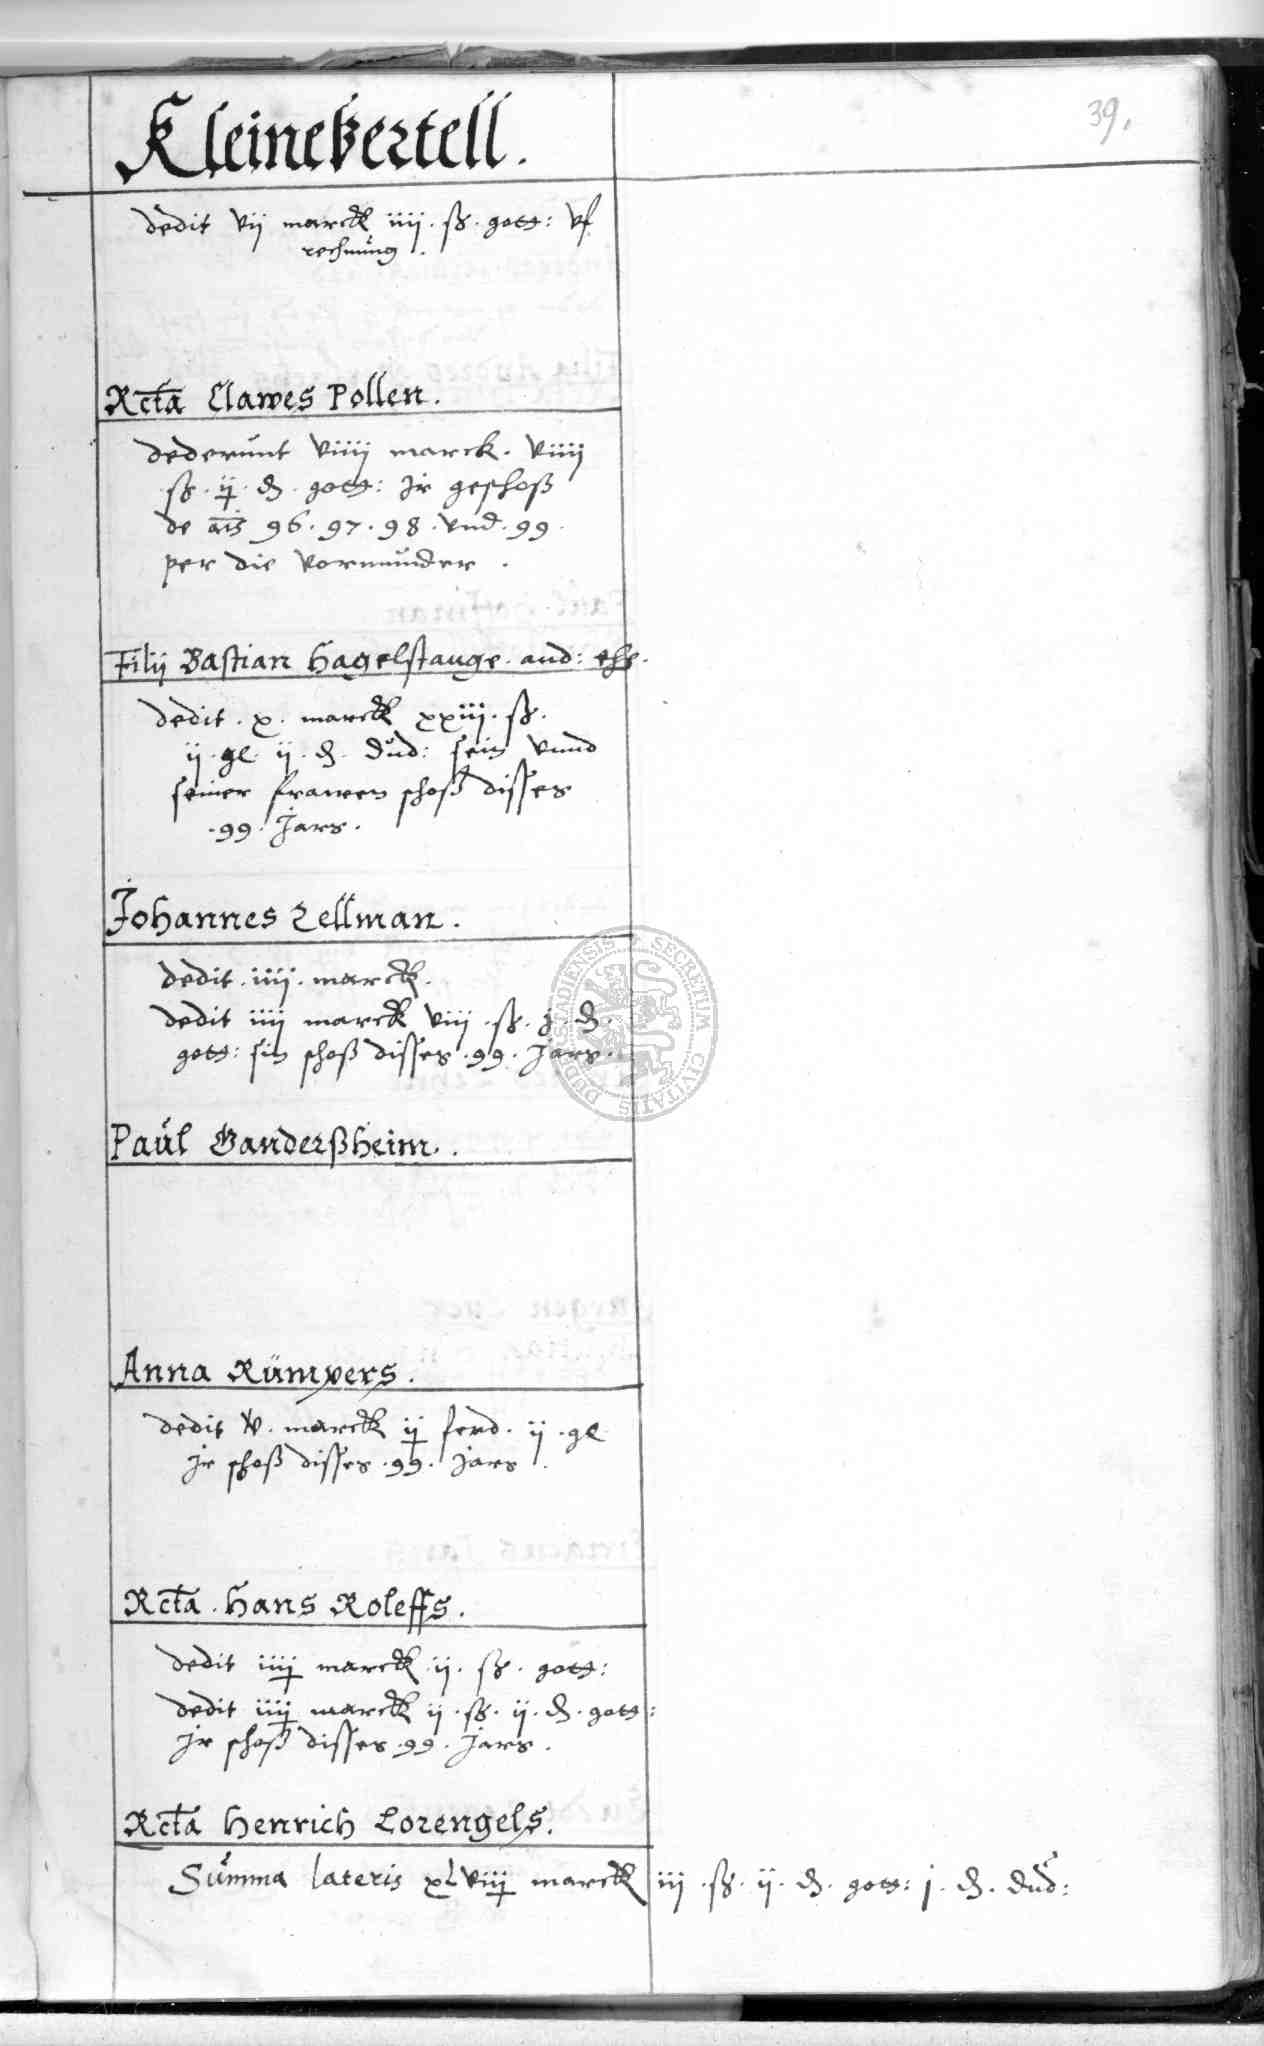 39.
Kleinekertell.
dedit vij marck iiij . ß . gots: vf
rechnung .
Rcta Clawes Pollen .
dederunt viiij marck . viiij
. ß . ij . ₰ . gots: Jr geschoß
de ais 96 . 97 . 98 . vnd . 99 .
per die vormunder .
Filij Bastian Hagelstange . and: ehe .
dedit . x . marck xxiii . ß .
ij . gl . ij . ₰ . dud: sein vnnd
seiner frawen schoß disses
. 99 . Jars .
Johannes Zellman .
dedit . iiij . marck .
dedit iiij marck viij . ß . j . ₰ .
gots: sin schoß disses . 99 . Jars .
DUDERSTADIENSIS SECRETUM CIVITATIS
Paul Ganderßheim .
Anna Rümpers .
dedit v . marck ij ferd . ij . gl
Jr schoß disses . 99 . Jars .
Rcta . Hans Roleffs .
dedit iiij marck ij . ß . gots:
dedit iiij marck ij . ß . ij . ₰ . gots:
Jr schoß disses . 99 . Jars .
Rcta Henrich Lorengels .
Summa lateris xlviij marck iij . ß . ij . ₰ . gots: j . ₰ . dud: